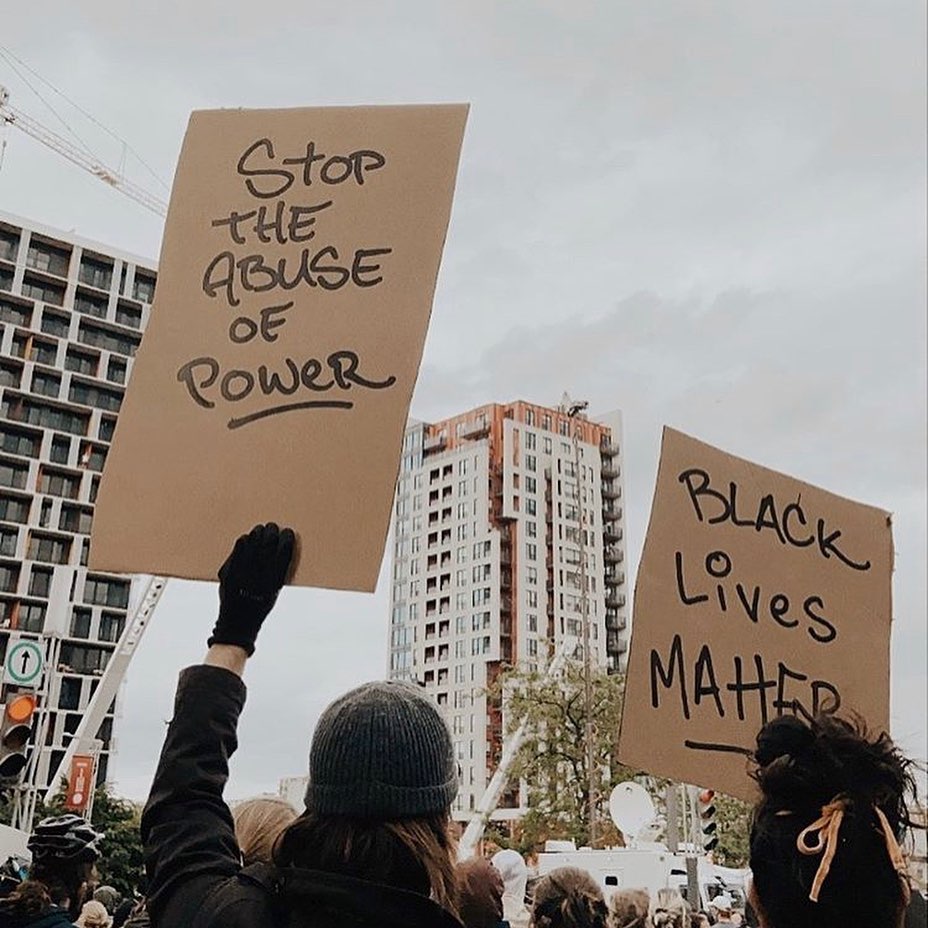 STOP
THE
ABUSE
OF
POWER
BLACK
LiVES
MATTER